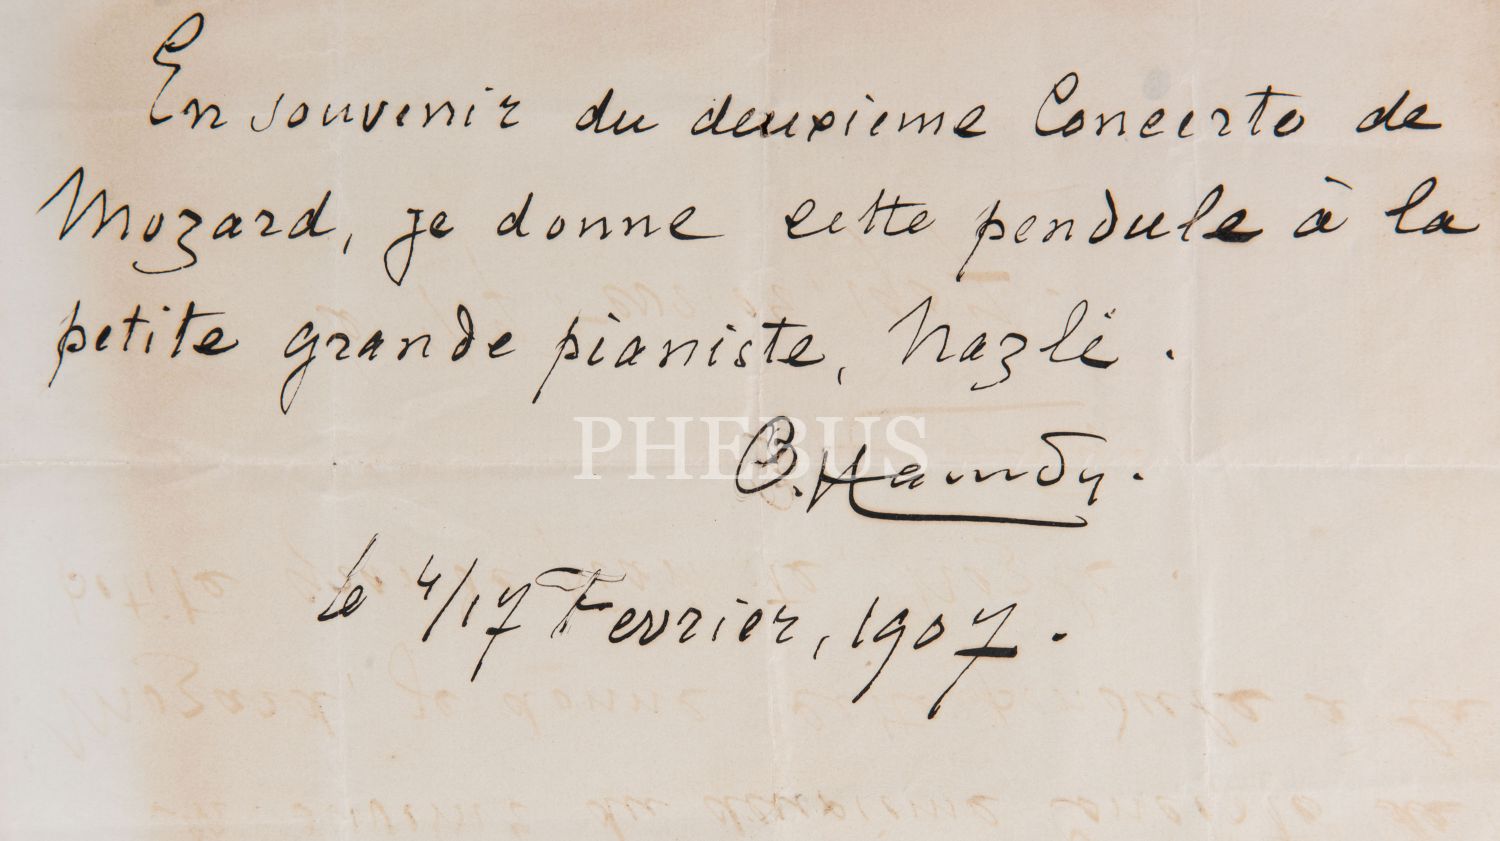 En souvenir du deuxieme Concerto de
Mozard, je donne cette pendule à la
petite grande pianiste, Nazlé.
PHEBUS
O. Hamdy.
le 4/17 Fevrier, 1907.